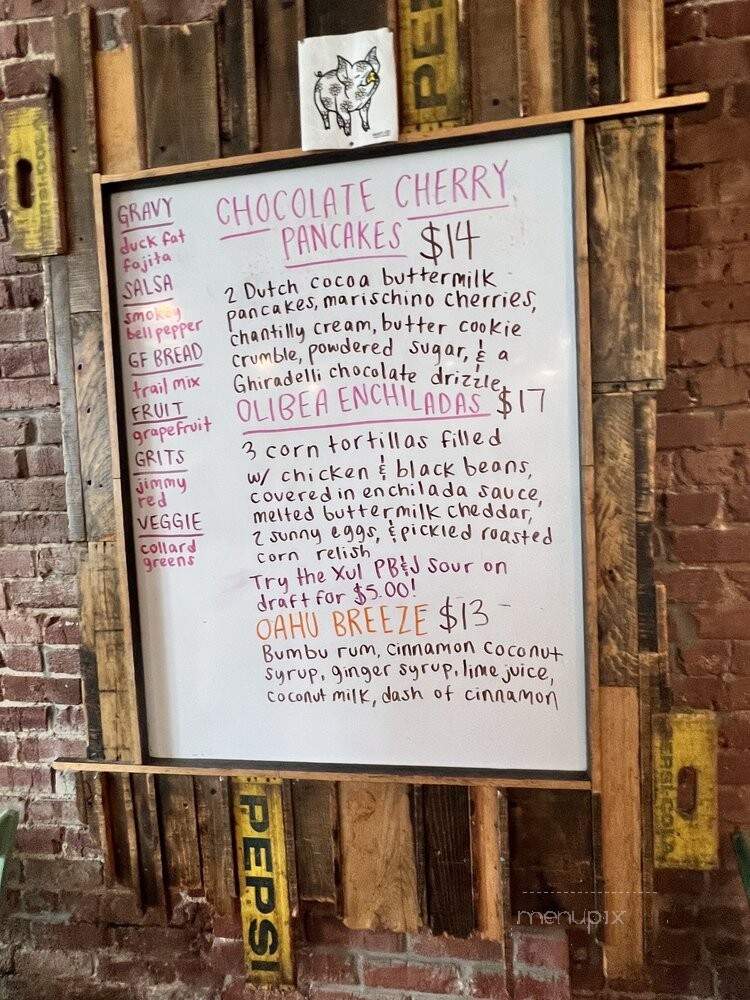 PEP
GRAVY
duck fat
fajita
SALSA
smokey
bell pepper
GF BREAD
trail mix
FRUIT
grapefruit
GRITS
jimmy
red
VEGGIE
collard
greens
CHOCOLATE CHERRY
PANCAKES $14
2 Dutch cocoa buttermilk
pancakes, marischino cherries,
chantilly cream, butter cookie
crumble, powdered sugar, & a
Ghiradelli chocolate drizzle
OLIBEA ENCHILADAS $17
3 corn tortillas filled
w/ chicken & black beans,
covered in enchilada sauce,
melted buttermilk cheddar,
2 sunny eggs, & pickled roasted
corn relish
Try the Xul PB&J Sour on
draft for $5.00!
OAHU BREEZE $13
Bumbu rum, cinnamon coconut
syrup, ginger syrup, lime juice,
coconut milk, dash of cinnamon
PEPSI
PEPSI-COLA
menupix